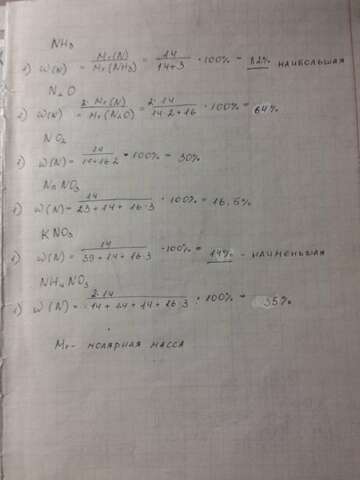 NH₃
1) W(N) = Mr(N)/Mr(NH₃) = 14/14+3 · 100% = 82% наибольшая
N₂O
2) W(N) = 2·Mr(N)/Mr(N₂O) = 2·14/14·2+16 · 100% = 64%
NO₂
1) W(N) = 14/14+16·2 · 100% = 30%
NaNO₃
1) W(N) = 14/23+14+16·3 · 100% = 16.5%
KNO₃
1) W(N) = 14/39+14+16·3 · 100% = 14% - наименьшая
NH₄NO₃
1) W(N) = 2·14/14+4+14+16·3 · 100% = 35%
Mr - молярная масса